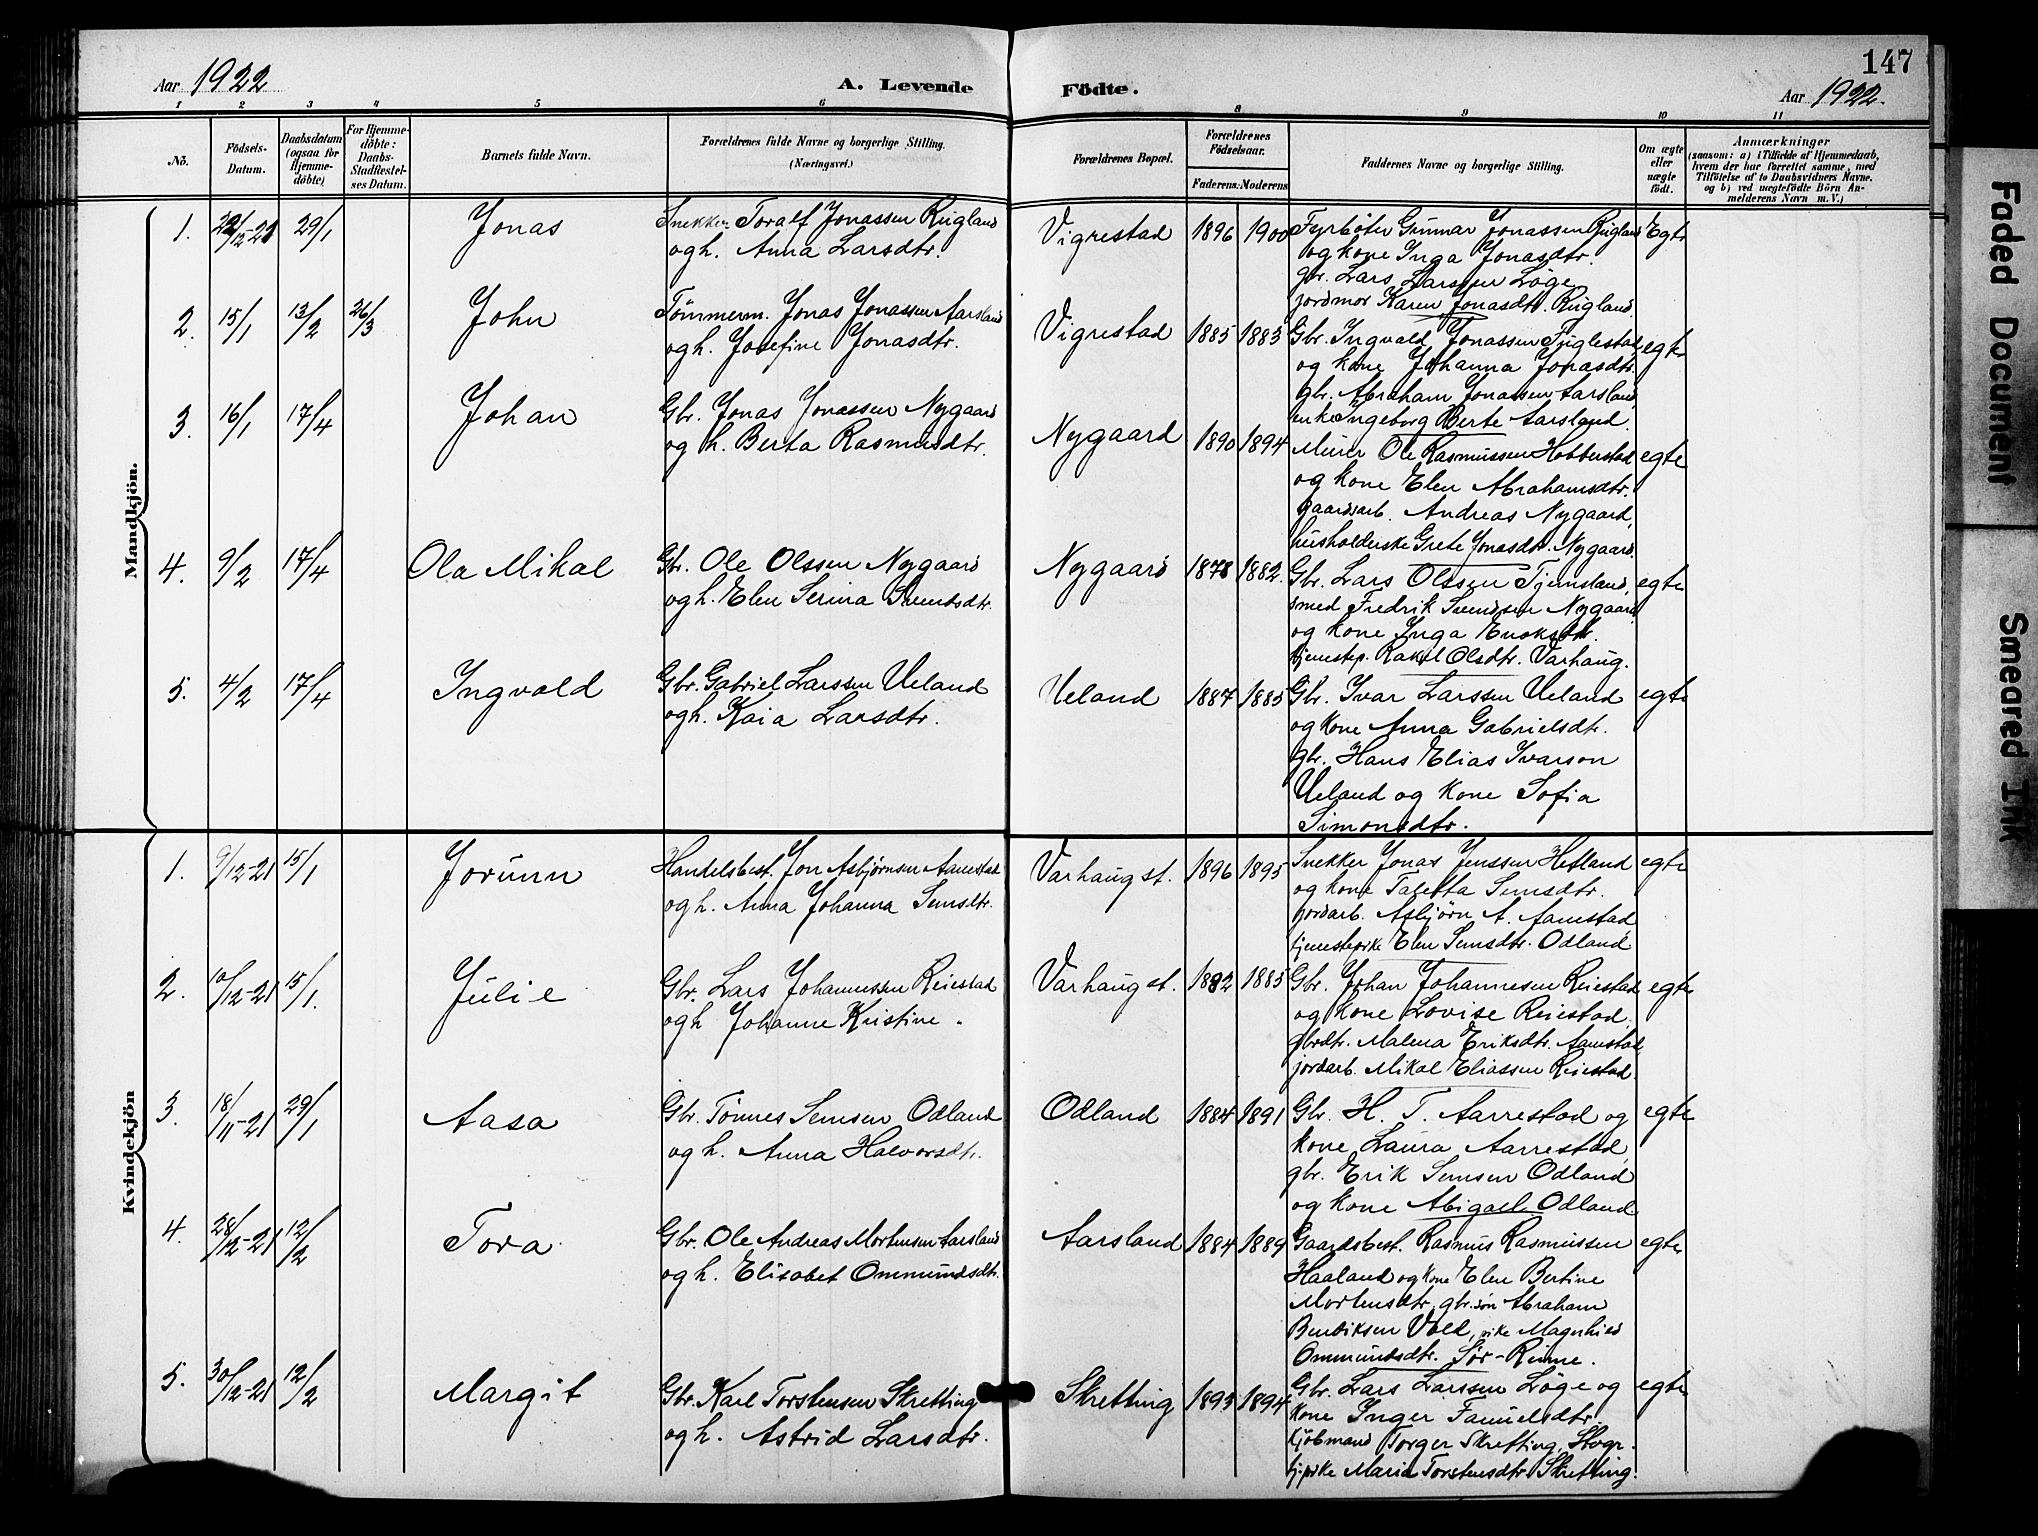 147
Aar 1922
A. Levende
Födte.
Aar 1922.
1 2 3 4 5 6 8 9 10 11
Nö.
Födsels-Datum.
Daabsdatum (ogsaa for Hjemme-döbte)
For Hjemme-döbte: Daabs-Stadfæstel-ses Datum.
Barnets fulde Navn.
Forældrenes fulde Navne og borgerlige Stilling.
(Næringsvei.)
Forældrenes Bopæl.
Forældrenes Födselsaar.
Faderens. Moderens
Faddernes Navne og borgerlige Stilling.
Om ægte eller uægte födt.
Anmærkninger
(saasom: a) i Tilfælde af Hjemmedaab,
hvem der har forrettet samme, med
Tilföielse af to Daabsvidners Navne.
og b) ved uægtefödte Börn An-
melderens Navn m. V.)
Mandkjön.
1. 29/1 Jonas
Snekker Toralf Jonassen Rugland
og h. Anna Larsdtr.
Vigrestad 1896 1900
Fyrbøter Gunnar Jonassen Rugland
og kone Inga Jonasdtr.
gbr. Lars Larssen Løge
jordmor Karen Jonasdtr. Rugland.
Egte
2. 15/1 13/2 26/3 John
Tømmerm. Jonas Jonassen Aarsland
og h. Josefine Jonasdtr.
Vigrestad 1885 1883
Gbr. Ingvald Jonassen Fuglestad
og kone Johanna Jonasdtr.
gbr. Abraham Jonassen Aarsland,
enke Ingeborg Berte Aarsland.
egte
3. 16/1 17/4 Johan
Gbr. Jonas Jonassen Nygaard
og h. Berta Rasmusdtr.
Nygaard 1890 1894
Murer Ole Rasmussen Hobberstad
og kone Elen Abrahamsdtr.
gaardsarb. Andreas Nygaard,
husholderske Grete Jonasdtr. Nygaard.
egte
4. 9/2 17/4 Ola Mikal
Gbr. Ole Olssen Nygaard
og h. Elen Serina Svendsdtr.
Nygaard 1878 1882.
Gbr. Lars Olssen Tjemsland,
smed Fredrik Svendsen Nygaard
og kone Inga Enoksdtr.
tjenestep. Rakel Olsdtr. Varhaug.
egte
5. 4/2 17/4 Ingvald
Gbr. Gabriel Larssen Ueland
og h. Kaia Larsdtr.
Ueland 1887 1885
Gbr. Ivar Larssen Ueland
og kone Anna Gabrielsdtr.
gbr. Hans Elias Ivarson
Ueland og kone Sofia
Simonsdtr.
egte
Kvindekjön
1. 9/12-21 15/1 Jorunn
Handelsbest. Jon Asbjørnsen Aanestad
og h. Anna Johanna Semsdtr.
Varhaug st. 1896 1895
Snekker Jonas Jenssen Hetland
og kone Taletta Semsdtr.
jordarb. Asbjørn A. Aanestad
tjenestepike Elen Semsdtr. Odland
egte
2. 10/12-21 15/1. Julie
Gbr. Lars Johannessen Reiestad
og h Johanne Kristine.
Varhaug st. 1882 1885
Gbr. Johan Johannesen Reiestad
og kone Lovise Reiestad.
gbrdtr. Malena Eriksdtr. Aanestad,
jordarb. Mikal Eliassen Reiestad.
egte
3. 18/11-21 29/1 Aasa
Gbr. Tønnes Semsen Odland
og h. Anna Halvorsdtr.
Odland 1884 1891
Gbr. H. T. Aarrestad og
kone Laura Aarrestad,
gbr. Erik Semsen Odland
og kone Abigael Odland
egte
4. 28/12-21 12/2 Tora
Gbr. Ole Andreas Mortensen Aarsland
og h. Elisabet Ommundsdtr.
Aarsland 1884 1889
Gaardsbest. Rasmus Rasmussen
Haaland og kone Elen Bertine
Mortensdtr. gbr.søn Abraham
Bendiksen Vold, pike Magnhild
Ommundsdtr. Sør-Reime.
egte
5. 30/12-21 12/2 Margit
Gbr. Karl Torstensen Skretting
og h. Astrid Larsdtr.
Skretting 1893 1894
Gbr. Lars Larssen Løge og
kone Inger Samuelsdtr.
kjøbmand Torger Skretting, Stogr.
tj.pike Maria Torstensdtr. Skretting.
egte
Faded Document
Smeared Ink